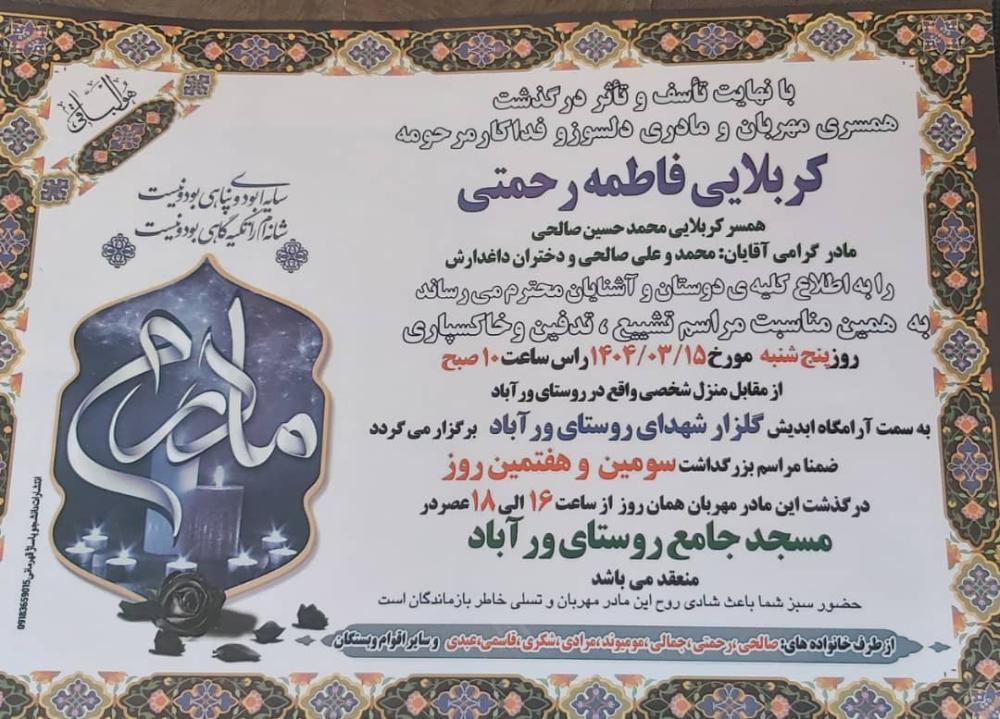 هو الباقی
با نهایت تأسف و تأثر درگذشت
همسری مهربان و مادری دلسوز و فداکار مرحومه
کربلایی فاطمه رحمتی
همسر کربلایی محمد حسین صالحی
مادر گرامی آقایان: محمد و علی صالحی و دختران داغدارش
را به اطلاع کلیه ی دوستان و آشنایان محترم می رساند
به همین مناسبت مراسم تشییع ، تدفین و خاکسپاری
روز پنج شنبه مورخ ۱۴۰۴/۰۳/۱۵ راس ساعت ۱۰ صبح
از مقابل منزل شخصی واقع در روستای ورآباد
به سمت آرامگاه ابدیش گلزار شهدای روستای ورآباد برگزار می گردد
ضمنا مراسم بزرگداشت سومین و هفتمین روز
درگذشت این مادر مهربان همان روز از ساعت ۱۶ الی ۱۸ عصر در
مسجد جامع روستای ورآباد
منعقد می باشد
حضور سبز شما باعث شادی روح این مادر مهربان و تسلی خاطر بازماندگان است
از طرف خانواده های: صالحی، رحمتی، جمالی، مومیوند، مرادی، شکری، قاسمی، عبدی و سایر اقوام وبستگان
سایه ای بود و پناهی بود و نیست
شانه ام را تکیه گاهی بود و نیست
مادرم
انتشارات دانشجو پاساژ قهرمانی 09183659015